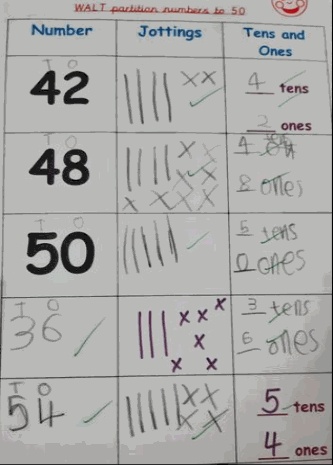 WALT partition numbers to 50
Number Jottings Tens and Ones
T O
42 4 tens
2 ones
T O
48 4
8 ones
T O
50 5 tens
0 ones
T O
36 3 tens
6 ones
T O
54 5 tens
4 ones